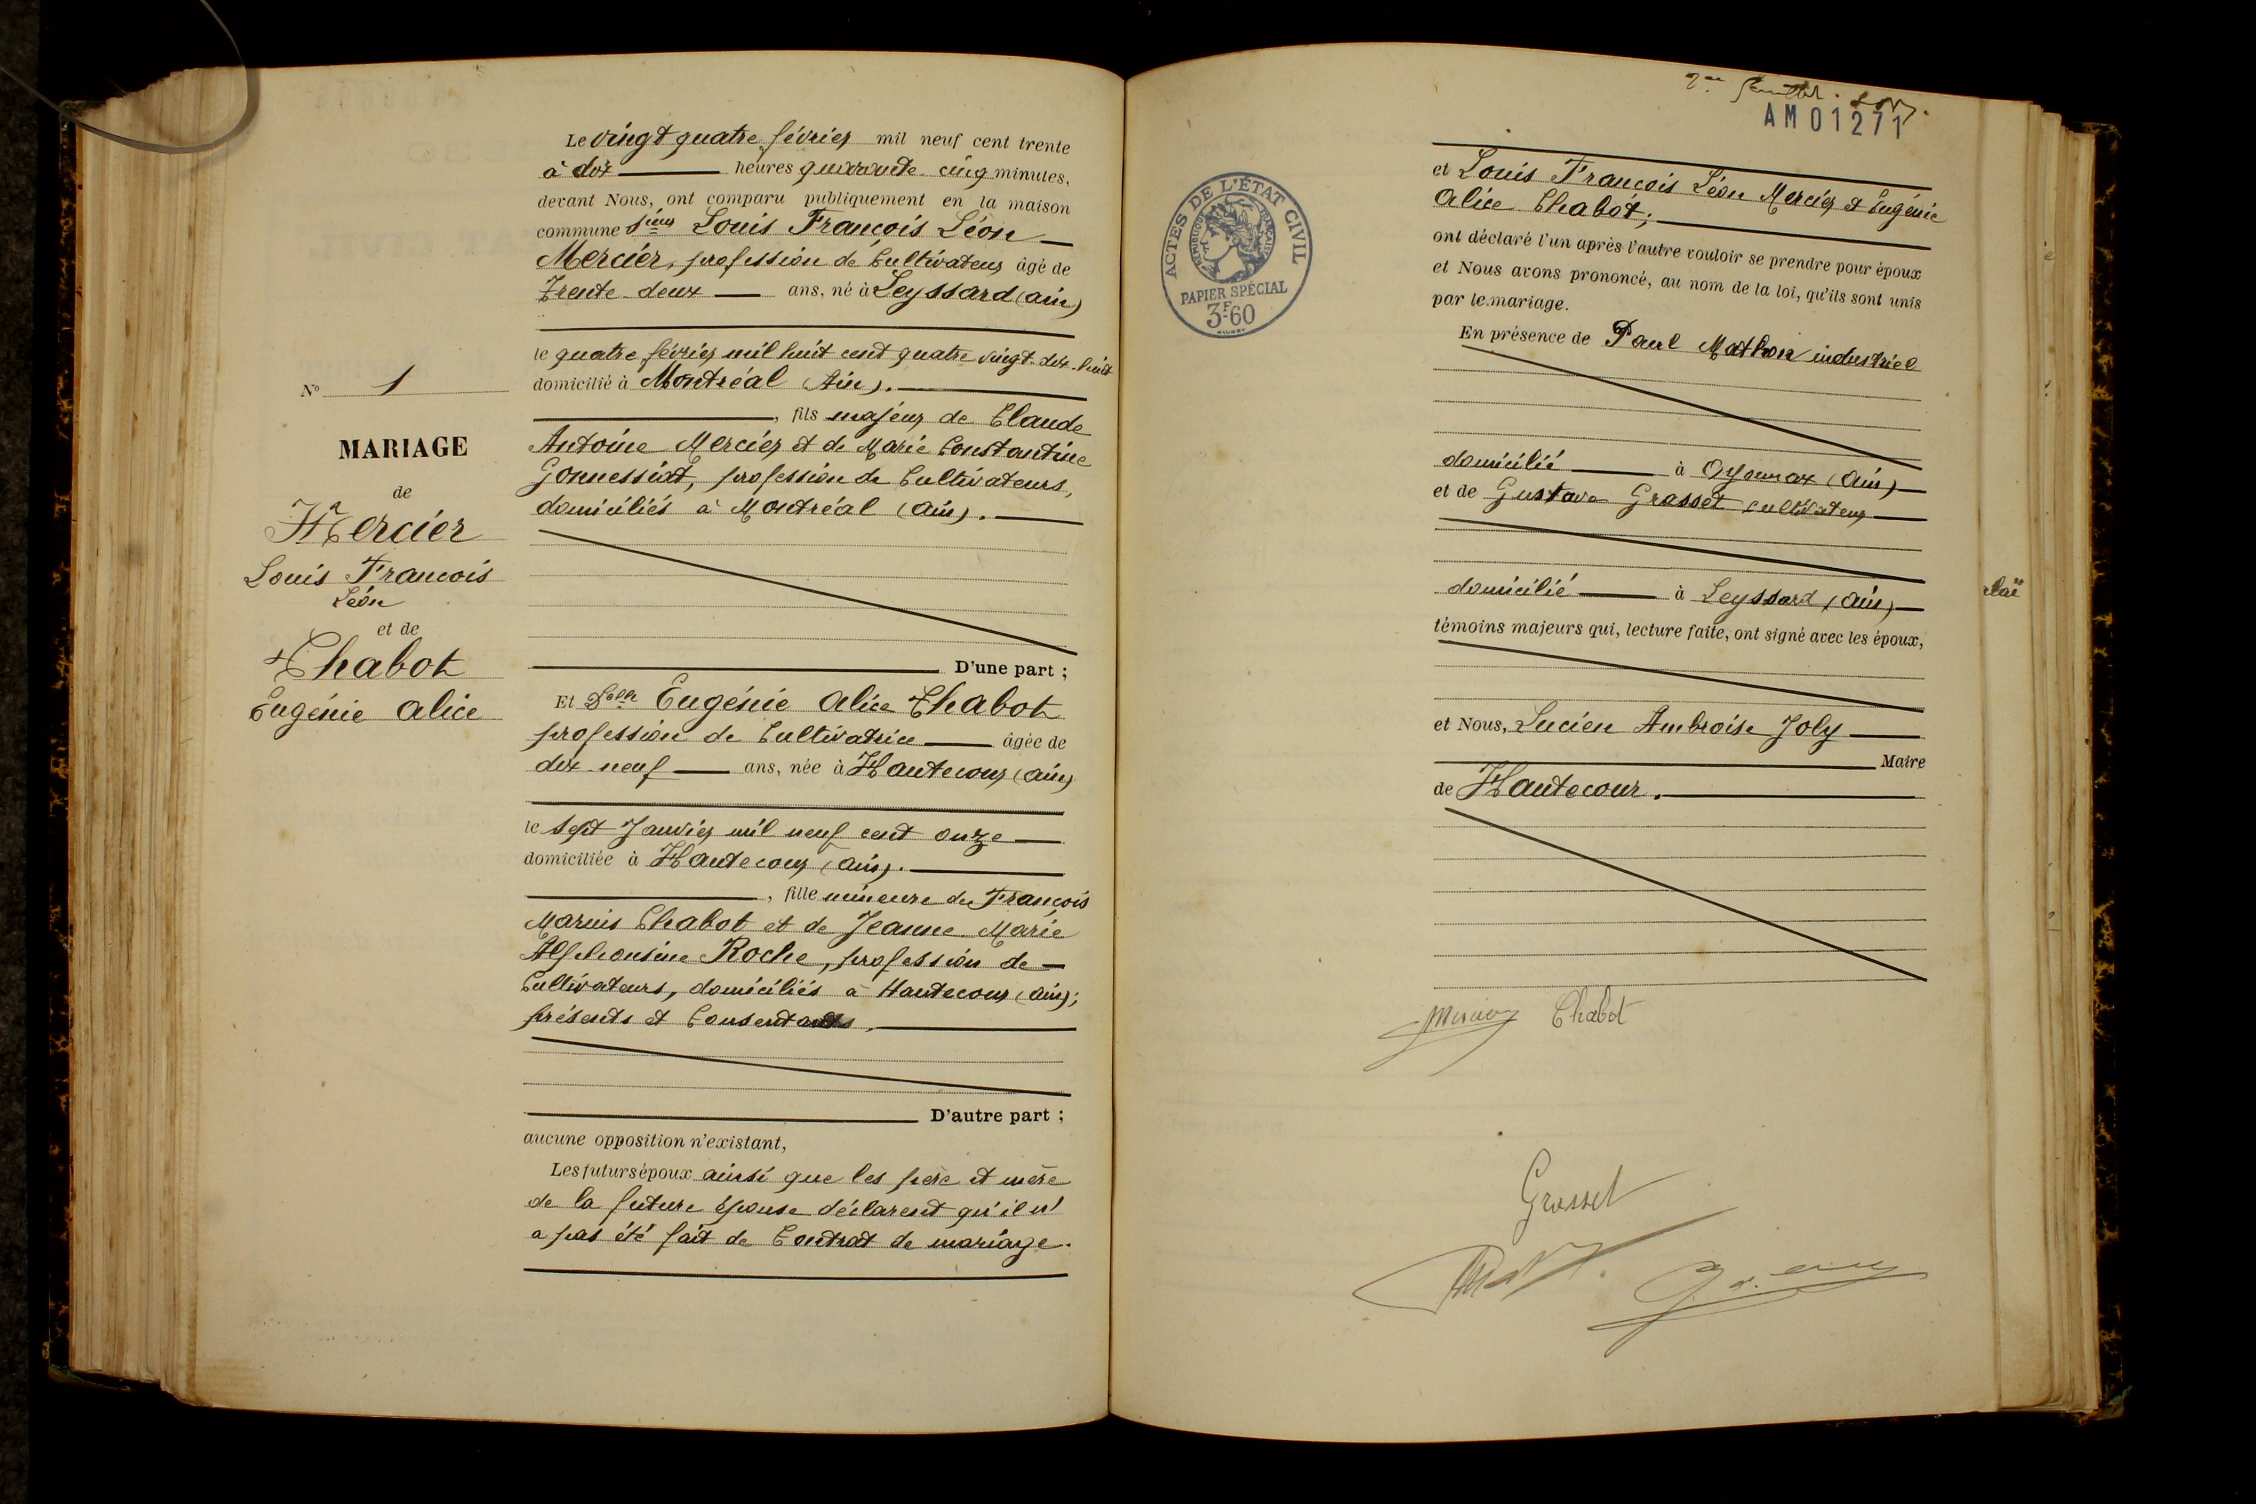 N° 1
MARIAGE
de
Mercier
Louis François
Léon
et de
Chabot
Eugénie Alice
Le vingt quatre février mil neuf cent trente
à dix heures quarante cinq minutes,
devant Nous, ont comparu publiquement en la maison
commune Sieur Louis François Léon
Mercier, profession de Cultivateur âgé de
Trente deux ans, né à Leyssard (Ain)
le quatre février mil huit cent quatre vingt dix-huit
domicilié à Montréal (Ain).
, fils majeur de Claude
Antoine Mercier et de Marie Constantine
Gonnessiat, profession de Cultivateurs,
domiciliés à Montréal (Ain).
D'une part ;
Et Delle Eugénie Alice Chabot
profession de Cultivatrice âgée de
dix neuf ans, née à Hautecour (Ain)
le sept Janvier mil neuf cent onze
domiciliée à Hautecour (Ain).
, fille mineure de François
Marius Chabot et de Jeanne Marie
Alphonsine Roche, profession de
Cultivateurs, domiciliés à Hautecour (Ain);
présents et Consentants.
D'autre part ;
aucune opposition n'existant,
Les futurs époux ainsi que les père et mère
de la future épouse déclarent qu'il n'
a pas été fait de Contrat de mariage.
AM01271
ACTES DE L'ÉTAT CIVIL
RÉPUBLIQUE FRANÇAISE
PAPIER SPÉCIAL
3F60
et Louis François Léon Mercier et Eugénie
Alice Chabot;
ont déclaré l'un après l'autre vouloir se prendre pour époux
et Nous avons prononcé, au nom de la loi, qu'ils sont unis
par le mariage.
En présence de Paul Mathon industriel
domicilié à Oyonnax (Ain)
et de Gustave Grasset cultivateur
domicilié à Leyssard (Ain)
témoins majeurs qui, lecture faite, ont signé avec les époux,
et Nous, Lucien Ambroise Joly
Maire
de Hautecour.
Mercier Chabot
Grasset